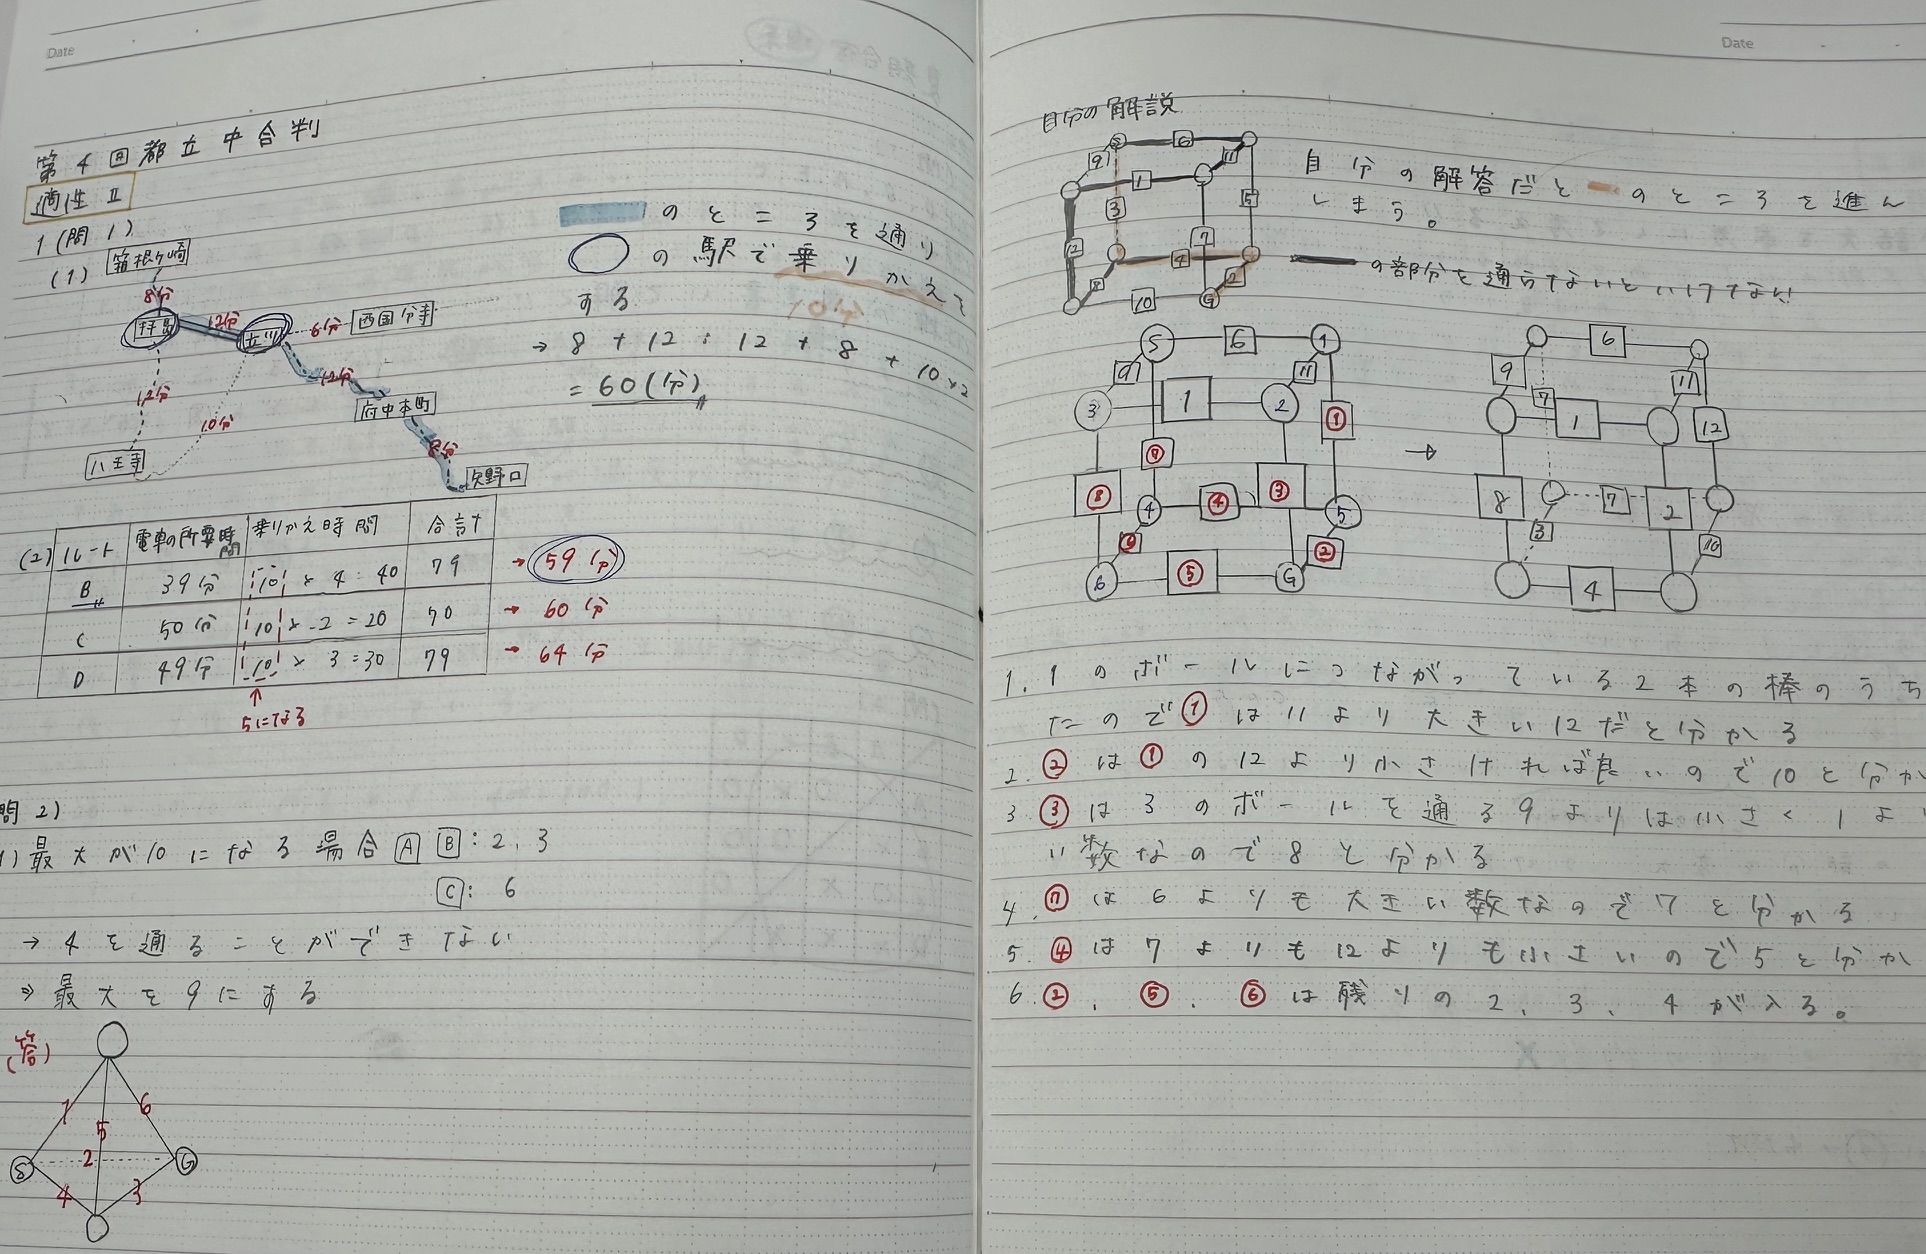 Date
第4回都立中合判
適性Ⅱ
1(問1)
(1)
箱根ヶ崎
8分
拝島
12分
立川
6分
西国分寺
12分
12分
10分
府中本町
8分
八王子
矢野口
のところを通り
の駅で乗りかえて
する
10分
→ 8+12+12+8+10×2
=60(分)
(2) ルート 電車の所要時間 乗りかえ時間 合計
B 39分 10×4=40 79 → 59分
C 50分 10×2=20 70 → 60分
D 49分 10×3=30 79 → 64分
↑
5になる
問2)
1)最大が10になる場合 A B:2,3
C:6
→ 4を通ることができない
⇒ 最大を9にする
(答)
1
6
5
2
S
G
4
3
Date
自分の解説
S
6
9
11
1
3
5
12
7
4
2
8
10
G
自分の解答だと のところを進ん
しまう。
の部分を通らないといけない
S 6 1
9 11
3 1 2 ①
⑦
⑧ ③
4 ④ 5
⑥ ②
6 ⑤ G
→
6
9 11
7
1 12
8 7 2
3 10
4
1. 1のボールにつながっている2本の棒のうち
たので①は11より大きい12だと分かる
2. ②は①の12より小さければ良いので10と分か
3. ③は3のボールを通る9よりは小さく1よ
い数なので8と分かる
4. ⑦は6よりも大きい数なので7と分かる
5. ④は7よりも12よりも小さいので5と分か
6. ②、⑤、⑥は残りの2、3、4が入る。